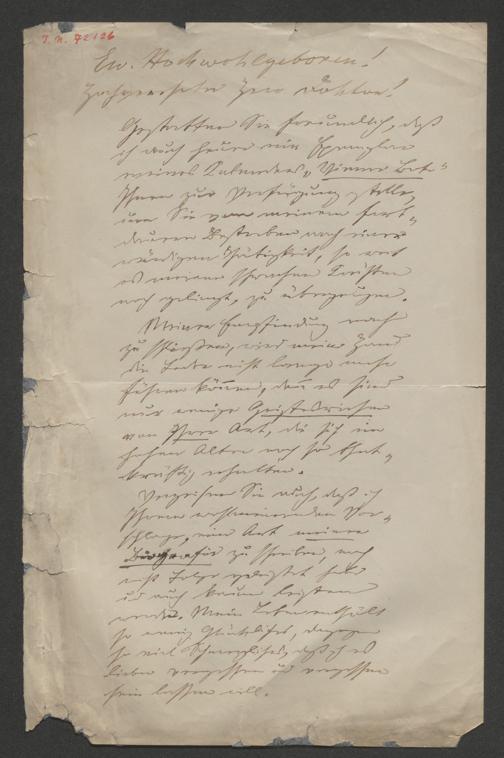 I. N. 72126
Ew. Hochwohlgeboren!
Hochverehrter Herr Doktor!
Gestatten Sie freundlich, daß
ich auch heuer ein Exemplar
meines Kalenders „Wiener Bote“
Ihnen zur Verfügung stelle,
um Sie von meinem fort-
dauernden Bestreben nach einer
würdigen Thätigkeit, so weit
es meinen schwachen Kräften
noch gelingt, zu überzeugen.
Meiner Empfindung nach
zu schließen, wird meine Hand
die Feder nicht lange mehr
führen können, denn es sind
nur wenige Geistesriesen
von Ihrer Art, die sich im
hohen Alter noch so that-
kräftig erhalten.
Verzeihen Sie auch, daß ich
Ihrem wohlmeinenden Vor-
schlage, eine Art meiner
Biografie zu schreiben, noch
nicht Folge geleistet habe
und auch kaum leisten
werde. Mein Leben enthält
so wenig Glückliches, dagegen
so viel Schmerzliches, daß ich es
lieber vergessen und vergessen
sein lassen will.